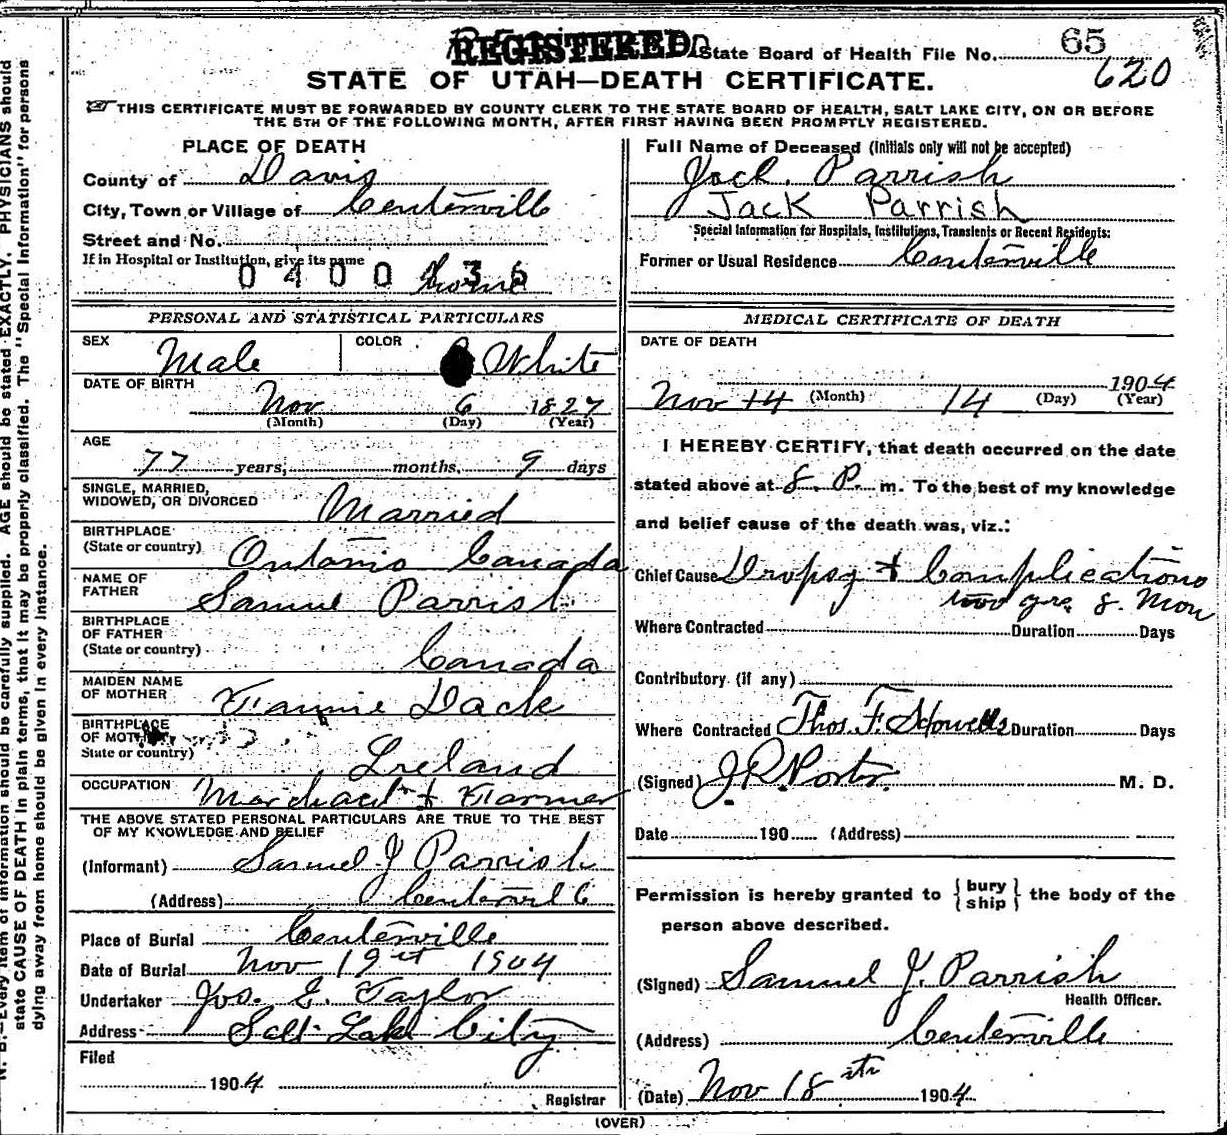 REGISTERED State Board of Health File No. 65
620
STATE OF UTAH—DEATH CERTIFICATE.
THIS CERTIFICATE MUST BE FORWARDED BY COUNTY CLERK TO THE STATE BOARD OF HEALTH, SALT LAKE CITY, ON OR BEFORE
THE 5TH OF THE FOLLOWING MONTH, AFTER FIRST HAVING BEEN PROMPTLY REGISTERED.
PLACE OF DEATH
County of Davis
City, Town or Village of Centerville
Street and No.
If in Hospital or Institution, give its name
0400436 home
PERSONAL AND STATISTICAL PARTICULARS
SEX Male COLOR White
DATE OF BIRTH
Nov 6 1827
(Month) (Day) (Year)
AGE
77 years, months, 9 days
SINGLE, MARRIED,
WIDOWED, OR DIVORCED Married
BIRTHPLACE
(State or country) Ontario Canada
NAME OF
FATHER Samuel Parrish
BIRTHPLACE
OF FATHER
(State or country) Canada
MAIDEN NAME
OF MOTHER Fannie Dack
BIRTHPLACE
OF MOTHER
State or country) Ireland
OCCUPATION Merchant & Farmer
THE ABOVE STATED PERSONAL PARTICULARS ARE TRUE TO THE BEST
OF MY KNOWLEDGE AND BELIEF
(Informant) Samuel J Parrish
(Address) Centervill
Place of Burial Centerville
Date of Burial Nov 19 1904
Undertaker Jos. E. Taylor
Address Salt Lake City
Filed
1904
Registrar
Full Name of Deceased (Initials only will not be accepted)
Joel Parrish
Jack Parrish
Special Information for Hospitals, Institutions, Transients or Recent Residents:
Former or Usual Residence Centerville
MEDICAL CERTIFICATE OF DEATH
DATE OF DEATH
1904
Nov 14 (Month) 14 (Day) (Year)
I HEREBY CERTIFY, that death occurred on the date
stated above at 8. P. m. To the best of my knowledge
and belief cause of the death was, viz.:
Chief Cause Dropsy & Complications
two yrs 8. Mon
Where Contracted Duration Days
Contributory (if any)
Where Contracted Thos. F. Howells Duration Days
(Signed) J.R. Porter M. D.
Date 190 (Address)
Permission is hereby granted to { bury ship } the body of the
person above described.
(Signed) Samuel J. Parrish
Health Officer.
(Address) Centerville
(Date) Nov 18th 1904
(OVER)
N. B.—Every item of information should be carefully supplied. AGE should be stated EXACTLY. PHYSICIANS should
state CAUSE OF DEATH in plain terms, that it may be properly classified. The "Special Information" for persons
dying away from home should be given in every instance.